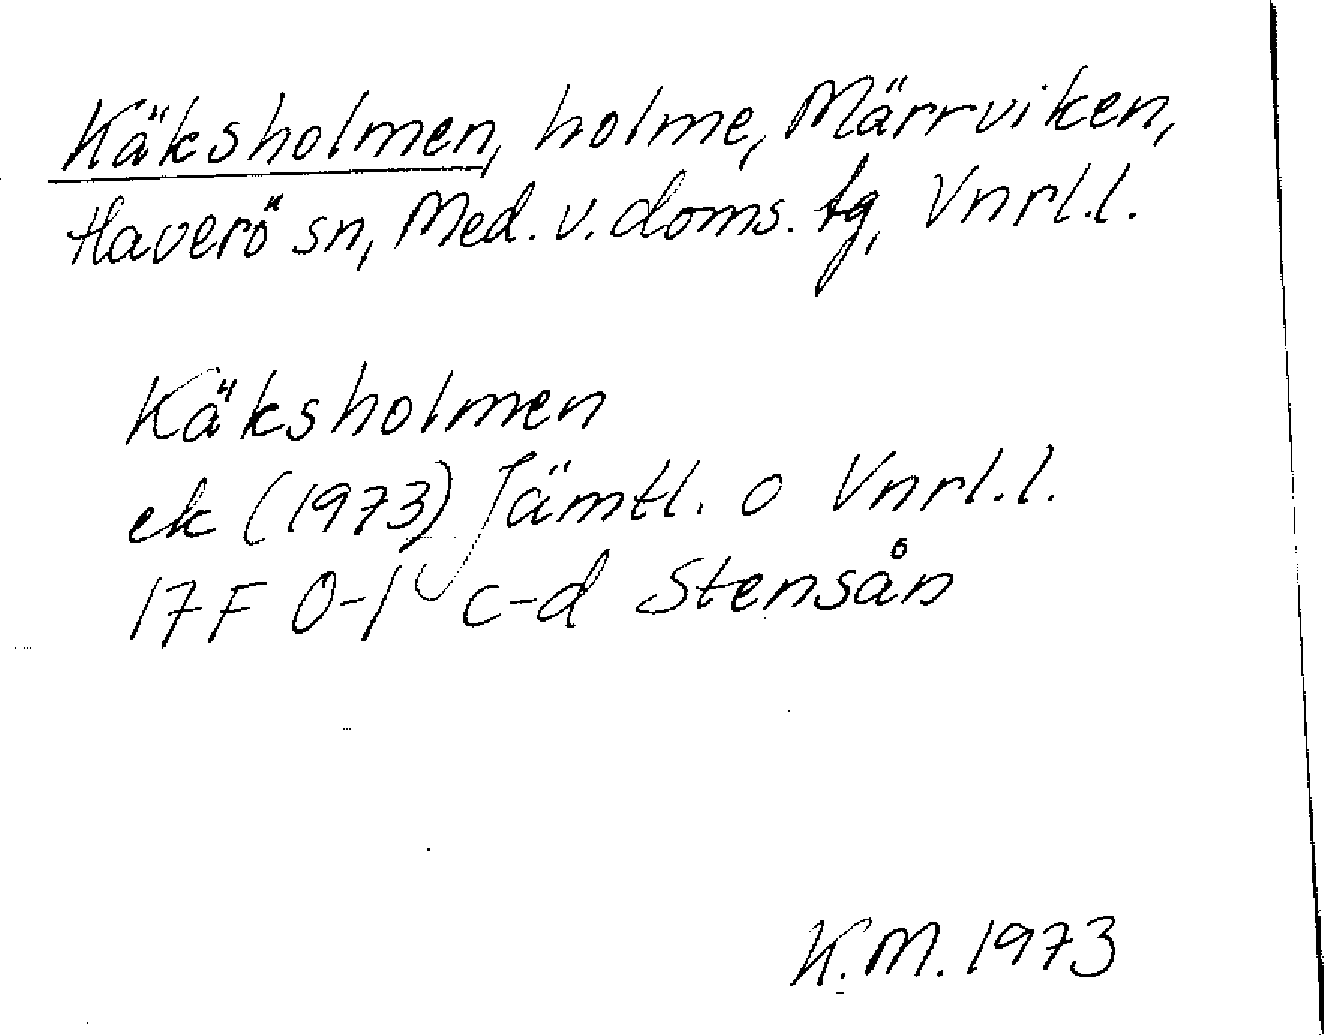 Käksholmen, holme, Märrviken,
Haverö sn, Med. v. doms. tg, Vnrl.l.
Käksholmen
ek (1973) Jämtl. o Vnrl.l.
17F 0-1 c-d Stensån
K.M. 1973